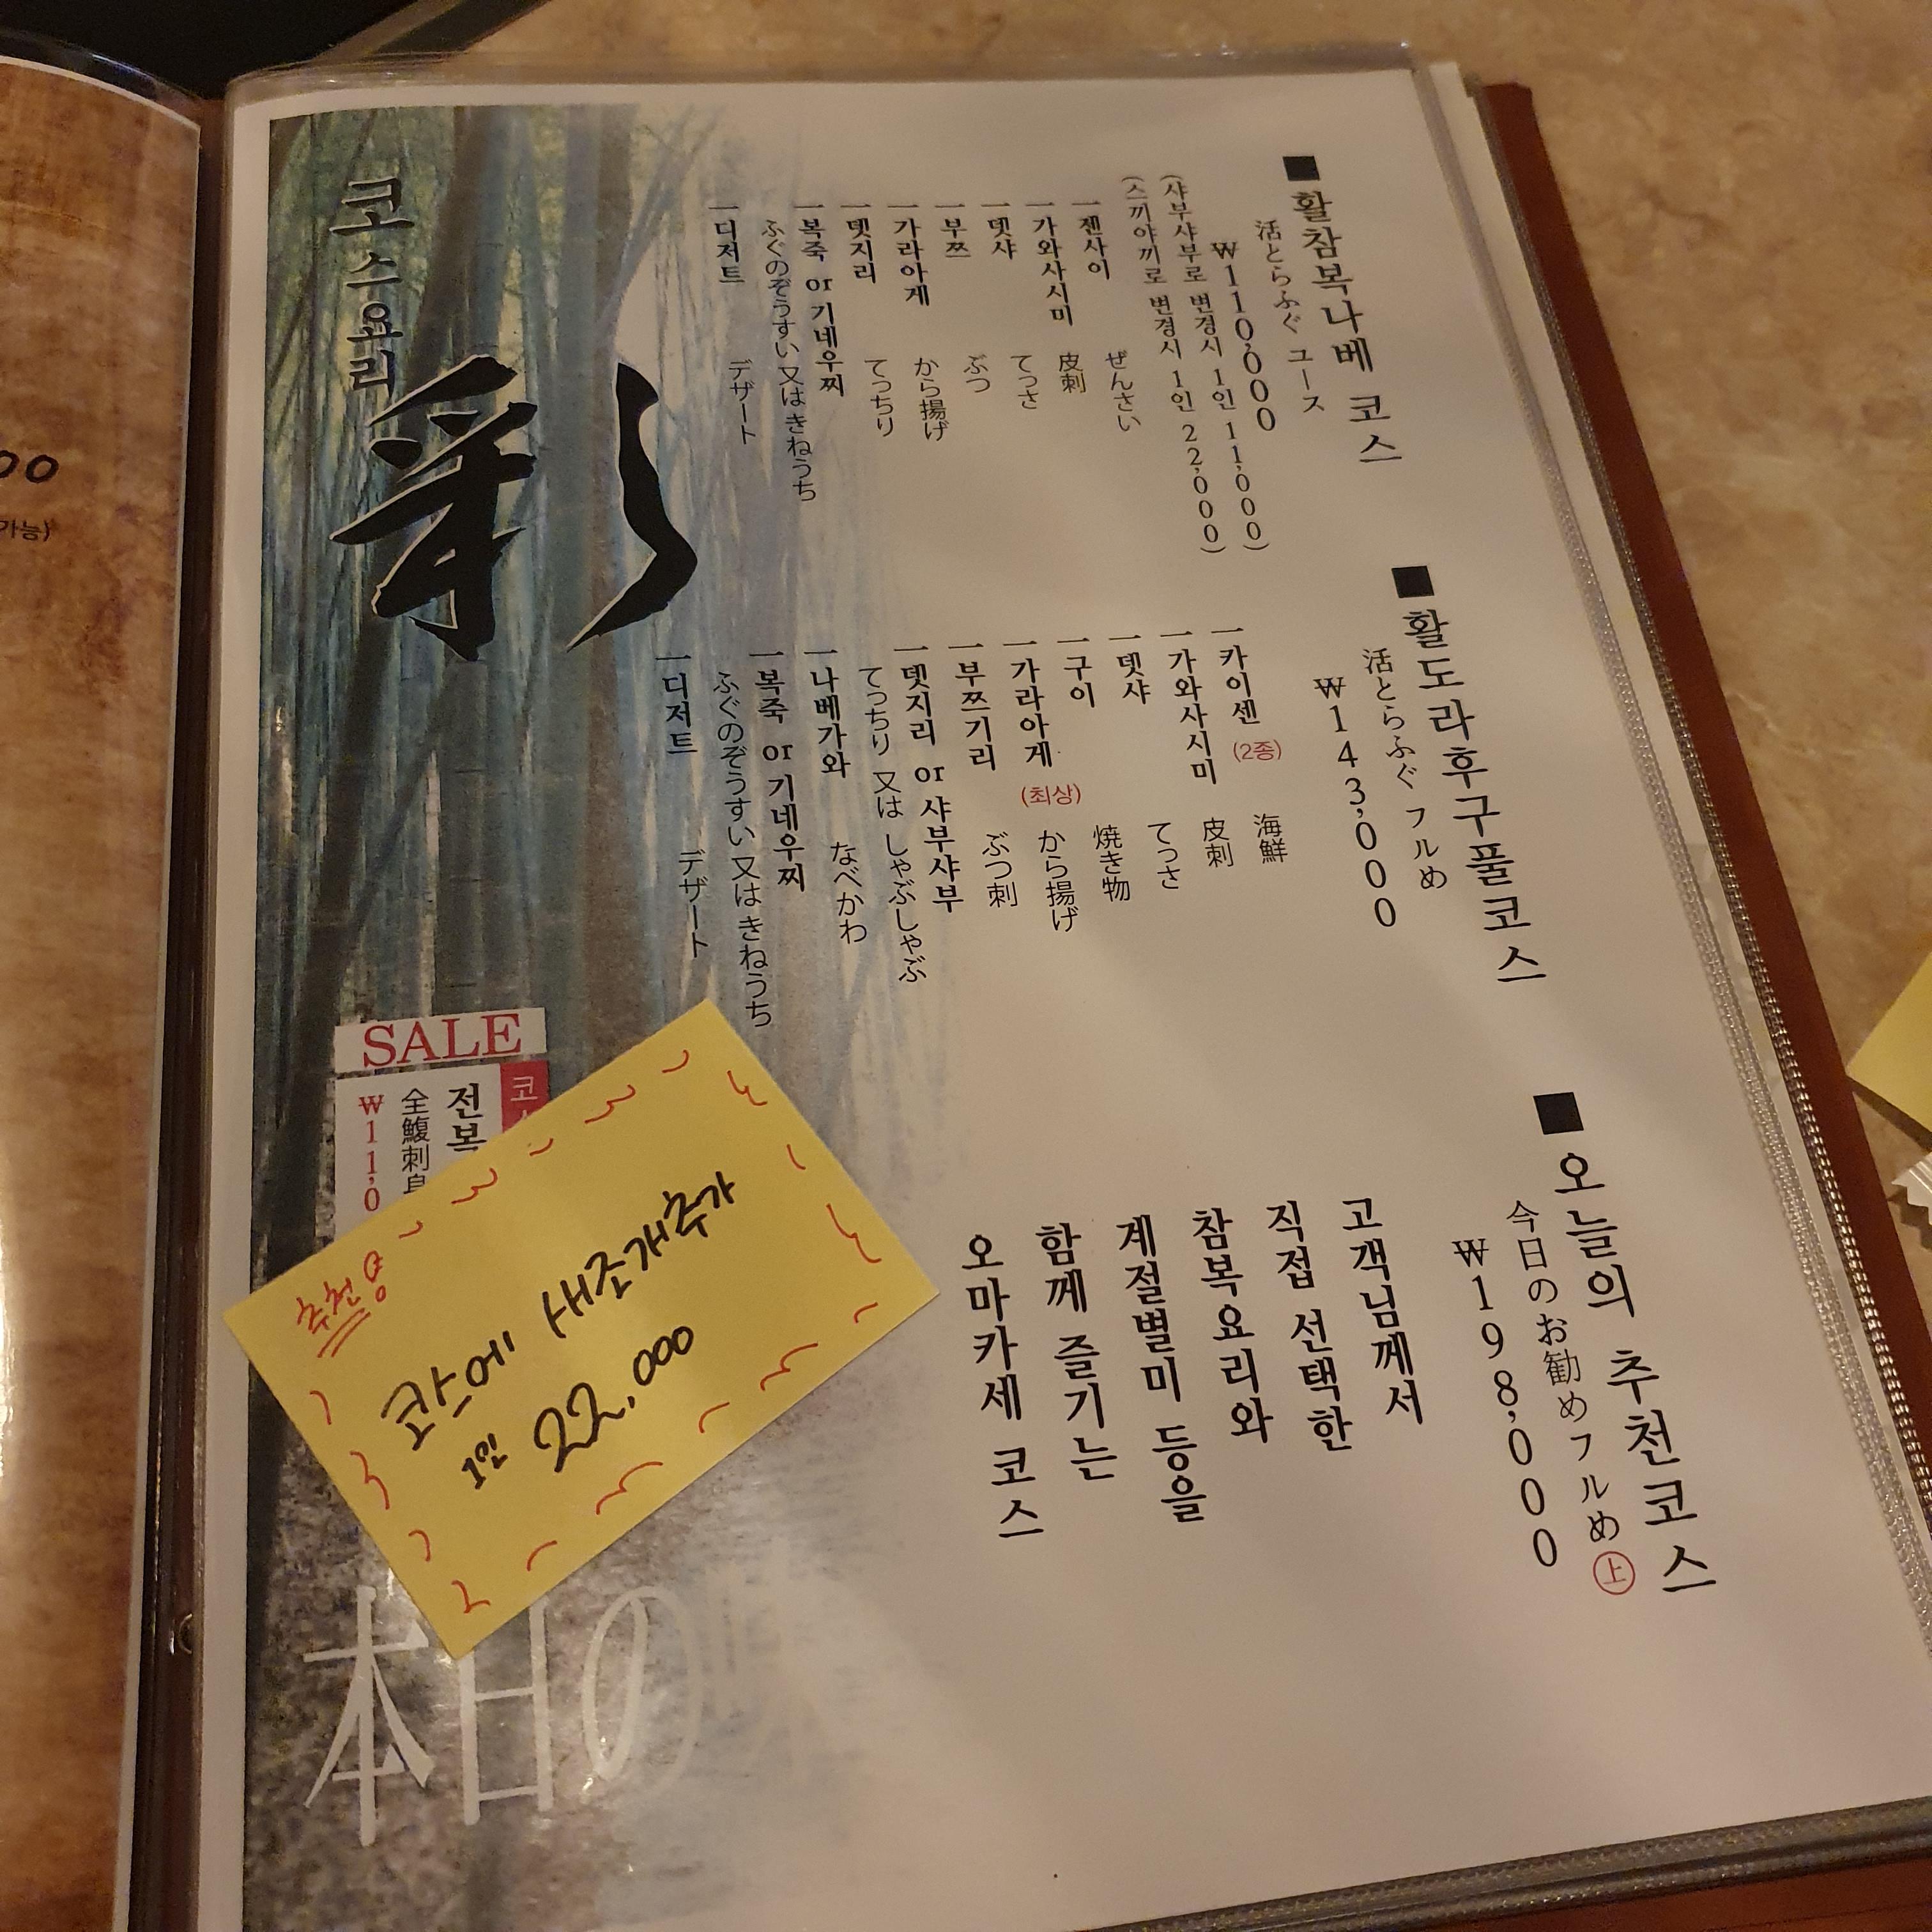 ■ 활참복나베 코스
活とらふぐ ユース
₩110,000
(샤부샤부로 변경시 1인 11,000)
(스끼야끼로 변경시 1인 22,000)
젠사이 ぜんさい
가와사시미 皮刺
뎃샤 てっさ
부쯔 ぶつ
가라아게 から揚げ
뎃지리 てっちり
복죽 or 기네우찌
ふぐのぞうすい 又は きねうち
디저트 デザート
■ 활도라후구풀코스
活とらふぐ フルめ
₩143,000
카이센 (2종) 海鮮
가와사시미 皮刺
뎃샤 てっさ
구이 焼き物
가라아게 (최상) から揚げ
부쯔기리 ぶつ刺
뎃지리 or 샤부샤부
てっちり 又は しゃぶしゃぶ
나베가와 なべかわ
복죽 or 기네우찌
ふぐのぞうすい 又は きねうち
디저트 デザート
■ 오늘의 추천코스
今日のお勧めフルめ 上
₩198,000
고객님께서
직접 선택한
참복요리와
계절별미 등을
함께 즐기는
오마카세 코스
코스요리
彩
SALE
코
전복
全鰒刺身
₩11,0
추천
코스에 새조개추가
1인 22,000
本日の
00
가능)